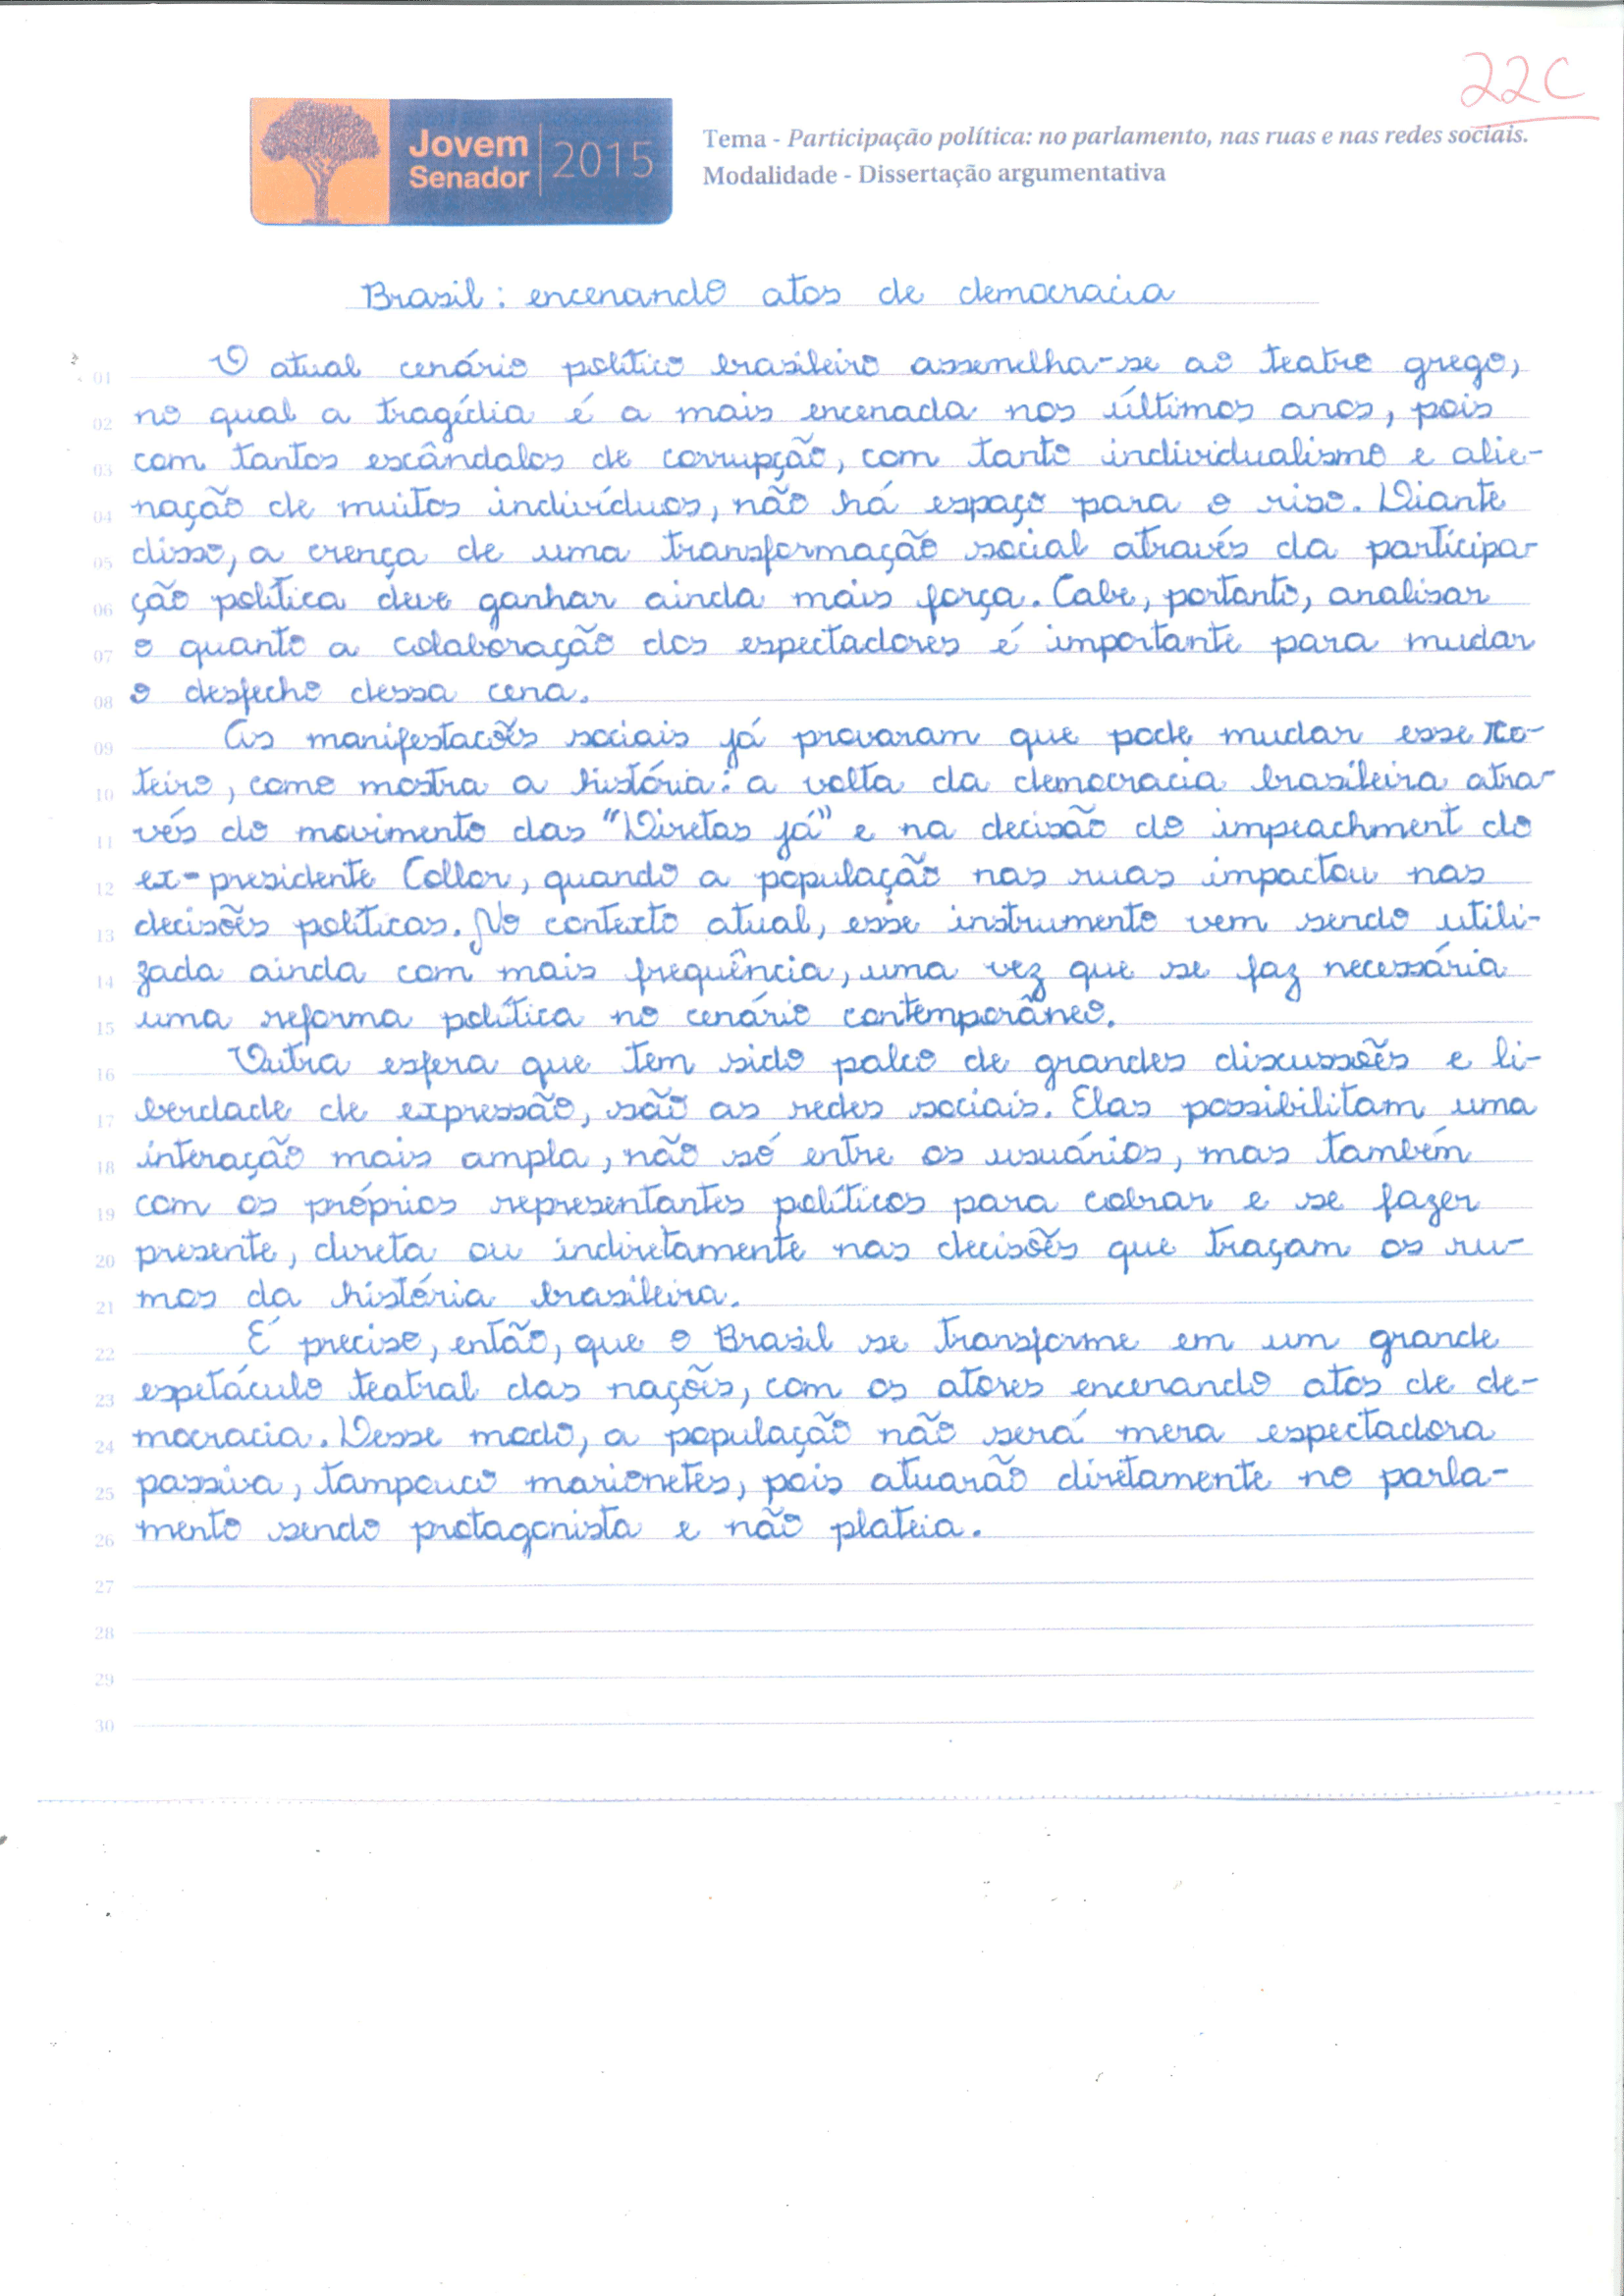 22C
Jovem
Senador
2015
Tema - Participação política: no parlamento, nas ruas e nas redes sociais.
Modalidade - Dissertação argumentativa
Brasil: encenando atos de democracia
01 O atual cenário político brasileiro assemelha-se ao teatro grego,
02 no qual a tragédia é a mais encenada nos últimos anos, pois
03 com tantos escândalos de corrupção, com tanto individualismo e alie-
04 nação de muitos indivíduos, não há espaço para o riso. Diante
05 disso, a crença de uma transformação social através da participa-
06 ção política deve ganhar ainda mais força. Cabe, portanto, analisar
07 o quanto a colaboração dos espectadores é importante para mudar
08 o desfecho dessa cena.
09 As manifestacões sociais já provaram que pode mudar esse ro-
10 teiro, como mostra a história: a volta da democracia brasileira atra-
11 vés do movimento das "Diretas já" e na decisão do impeachment do
12 ex-presidente Collor, quando a população nas ruas impactou nas
13 decisões políticas. No contexto atual, esse instrumento vem sendo utili-
14 zada ainda com mais frequência, uma vez que se faz necessária
15 uma reforma política no cenário contemporâneo.
16 Outra esfera que tem sido palco de grandes discussões e li-
17 berdade de expressão, são as redes sociais. Elas possibilitam uma
18 interação mais ampla, não só entre os usuários, mas também
19 com os próprios representantes políticos para cobrar e se fazer
20 presente, direta ou indiretamente nas decisões que traçam os ru-
21 mos da história brasileira.
22 É preciso, então, que o Brasil se transforme em um grande
23 espetáculo teatral das nações, com os atores encenando atos de de-
24 mocracia. Desse modo, a população não será mera espectadora
25 passiva, tampouco marionetes, pois atuarão diretamente no parla-
26 mento sendo protagonista e não plateia.
27
28
29
30